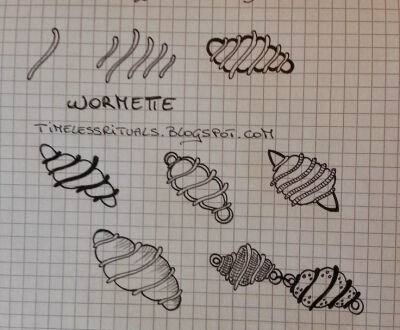 WORMETTE
TIMELESSRITUALS.BLOGSPOT.COM